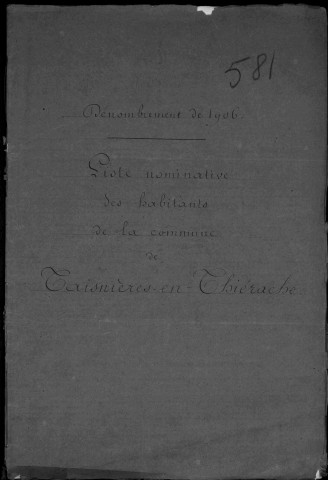 581
Dénombrement de 1906
Liste nominative
des habitants
de la commune
de
Taisnières-en-Thiérache